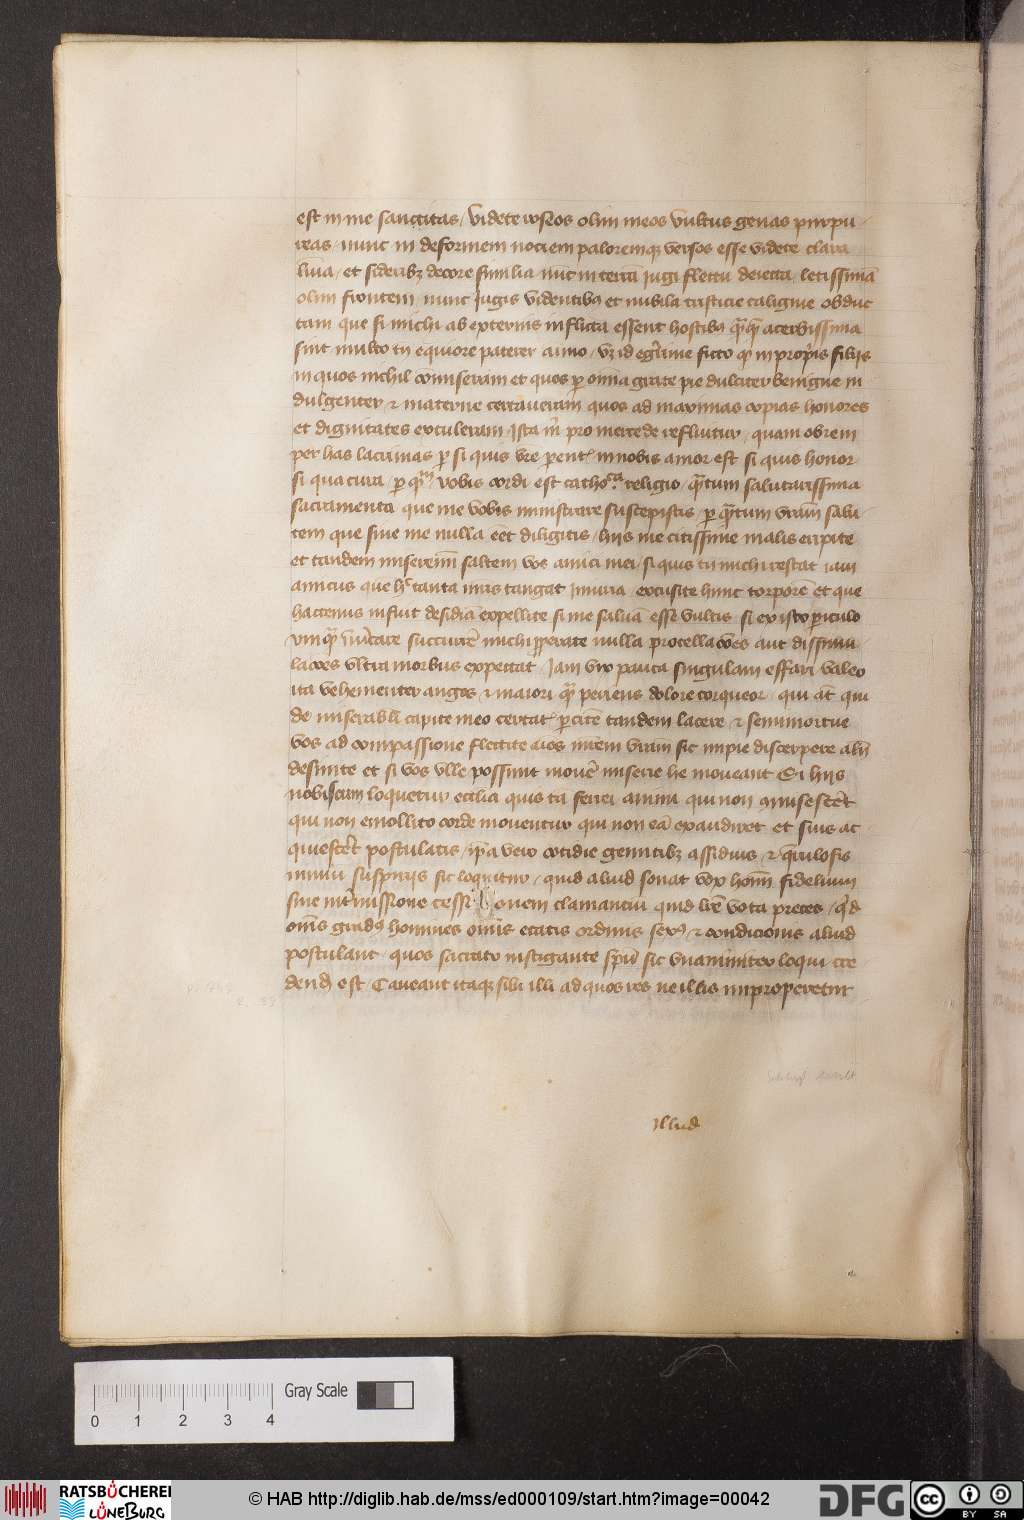 est in me sanctitas / videte roseos olim meos vultus genas purpu
reas / nunc in deformem noctem paloremq versos esse videte clara
lumina / et sideribz decore similia nūc in terrā jugi fletu deiecta / letissimā
olim frontem / nunc jugis videntibus et nubila tristicie caligine obduc
tam que si michi ab externis inflicta essent hostibus qūqȝ acerbissima
sint multo tn̄ equiore paterer animo / vȝ id egerrime fero qȝ in proprijs filijs
in quos nichil cōmiseram et quos per om̄ia grate pie dulciter benigne in
dulgenter ⁊ materne certaveram quos ad maximas copias honores
et dignitates extuleram / Ista m̄ pro mercede refluitur / quam obrem
per has lacrimas per si quis vr̄e parent. in vobis amor est si quis honor
si qua cura per qm̄ vobis cordi est catholica religio / quātum salutarissima
sacramenta que me vobis ministrare suscepistis / per quātum vram̄ salu
tem que sine me nulla eēt diligitis / hijs me citissime malis eripite
et tandem miseremī saltem vos amici mei / si quis tn̄ michi restat iam
amicus que hc tanta m̄ris tangat iniuria / excusite hunc torporē et que
hactenus infuit desidiā expellite si me saluā esse vultis si ex isto periculo
vmqȝ lib̄tare succurrē michi properate nulla procellacōes aut dissimu
lacōes vltra morbus expectat / Jam vix pauca singulam effari valeo
ita vehementer angor ⁊ maiori qȝ periens dolore torqueor / qui at̄ qui
de miserabili capite meo certat. parcite tandem lacere ⁊ semimortue
vos ad compassione flectite aīos mr̄em vram̄ sic impie discerpere alīī
desinite et si vos vlle possunt movē miserie he moveant Si hijs
nobiscum loquetur ecclia quis tā ferrei animi qui non mitescēt
qui non emollito corde moveretur qui non eā exaudiret et suis ac
quiescēt postulatis / ipa vero cotidie gemitibz assiduis / ⁊ q̄rulosis
nimiū suspirijs sic loquitur / quid aliud sonat vox homī fidelium
sine int̄missione cessi onem clamanciū quid hr̄e vota preces / qd
om̄is gradus homines om̄is etatis ordinis sexus ⁊ condicionis aliud
postulant / quos sacitato instigante spū sic vnanimiter loqui cre
dend est Caveant itaqȝ sibi illi ad quos res ne illis improperetur
illud
0 1 2 3 4
Gray Scale
RATSBÜCHEREI
LÜNEBURG
© HAB http://diglib.hab.de/mss/ed000109/start.htm?image=00042
DFG
cc
BY SA